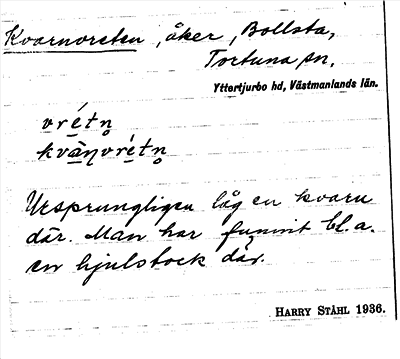 Kvarnvreten, åker, Bollsta,
Tortuna sn,
Yttertjurbo hd, Västmanlands län.
vrétn̥
kvànvrétn̥
Ursprungligen låg en kvarn
där. Man har funnit bl.a.
en hjulstock där.
HARRY STÅHL 1936.